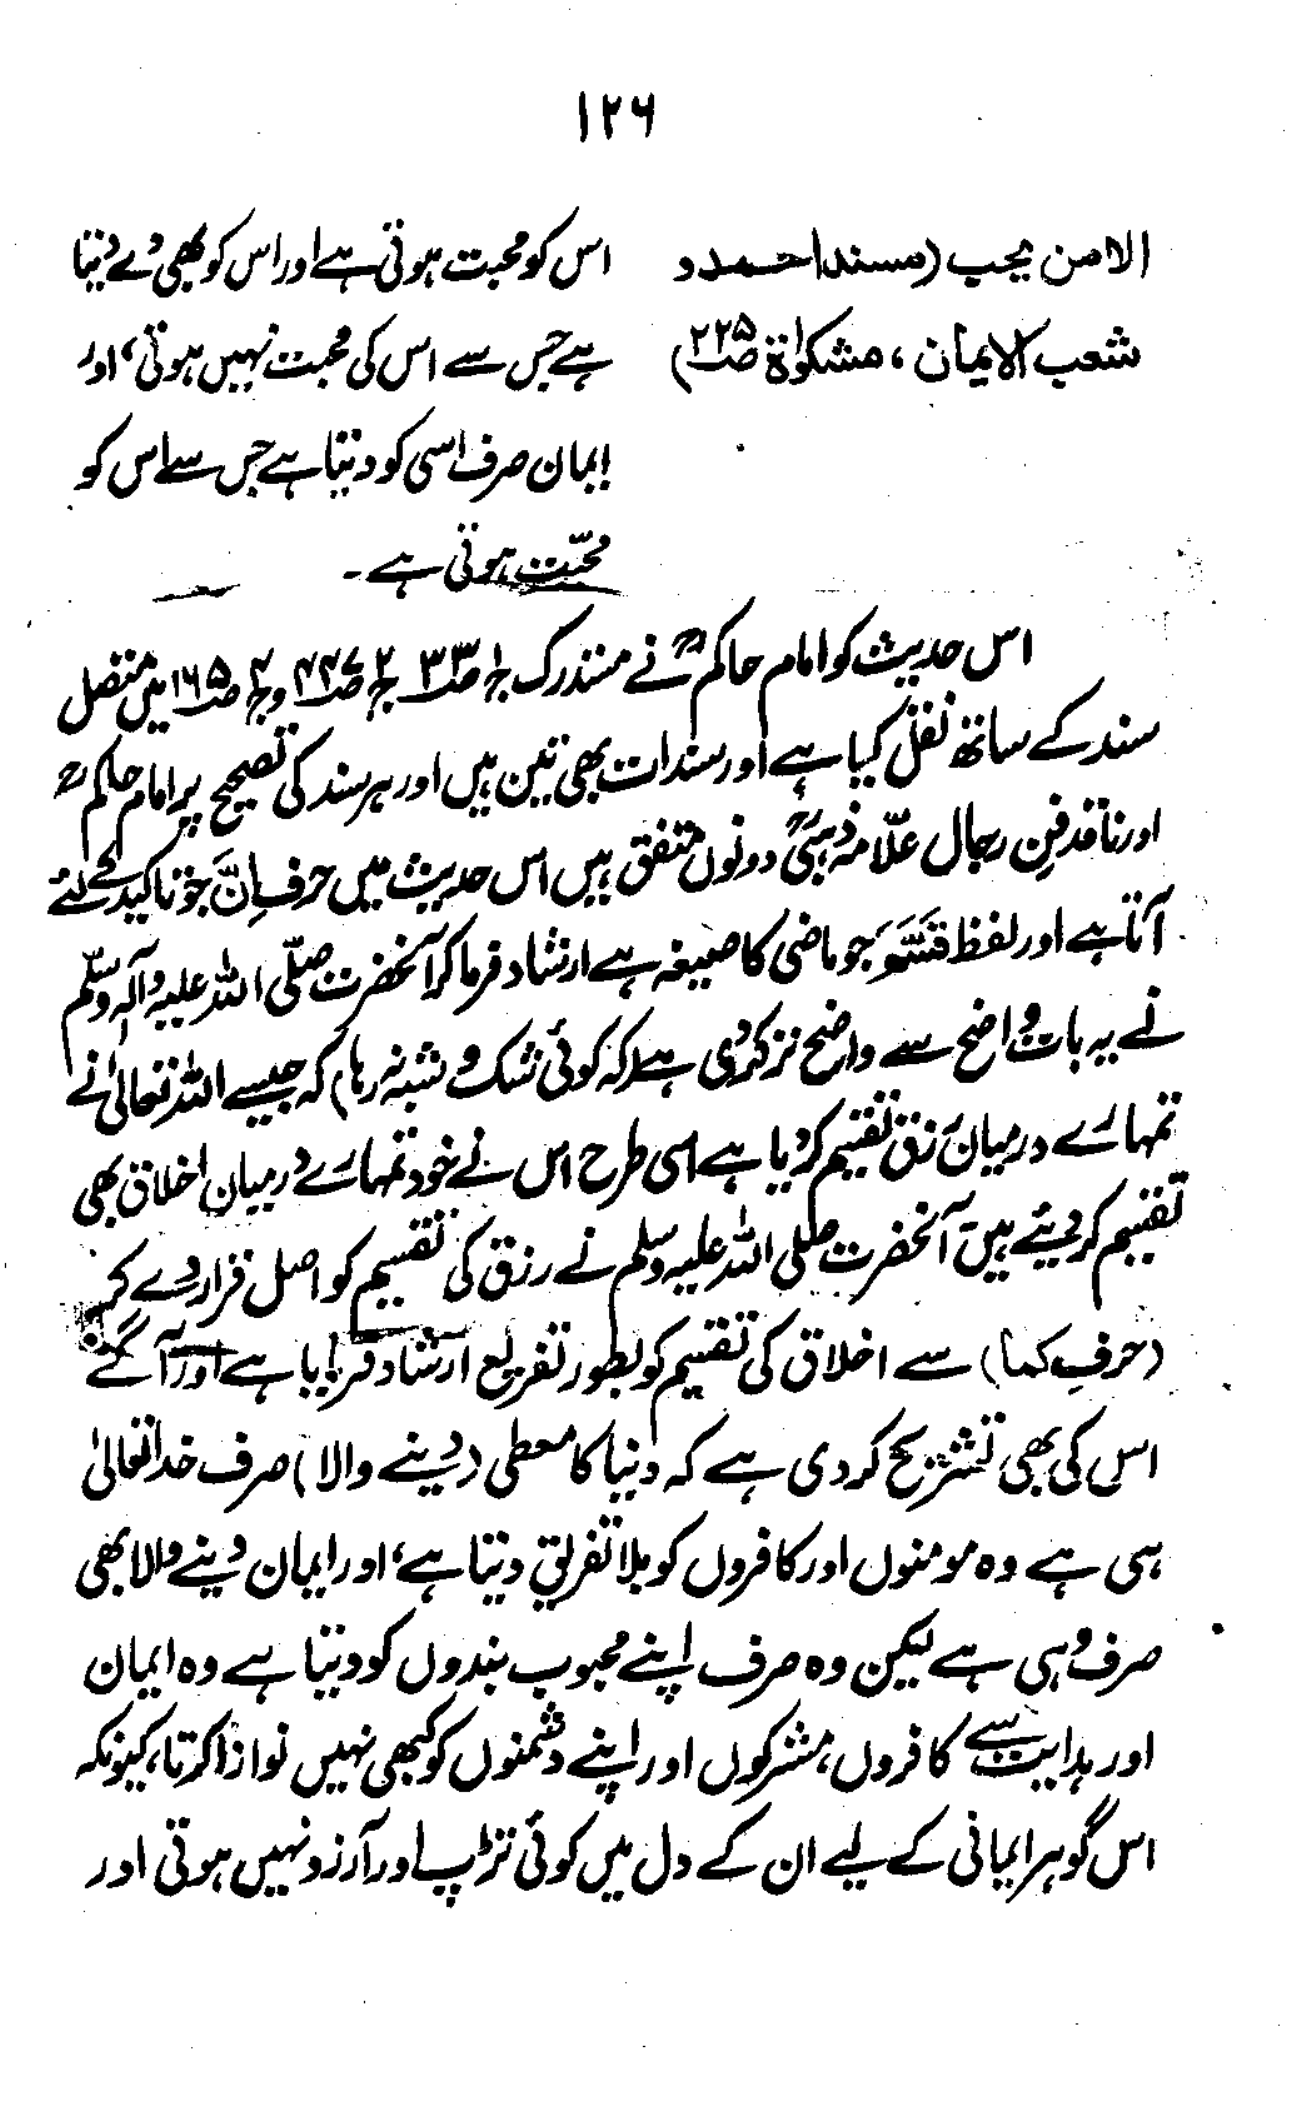 ۱۲۶
الا من یحب (مسند احمد و
شعب الایمان، مشکوٰۃ ص۲۲۵)
اس کو محبت ہوتی ہے اور اس کو بھی دے دیتا
ہے جس سے اس کی محبت نہیں ہوتی، اور
ایمان صرف اسی کو دیتا ہے جس سے اس کو
محبّت ہوتی ہے۔
اس حدیث کو امام حاکمؒ نے مستدرک ج۱ ص۳۳ ج۲ ص۴۴۷ و ج۴ ص۱۶۵ میں متصل
سند کے ساتھ نقل کیا ہے اور سندات بھی تین ہیں اور ہر سند کی تصحیح پر امام حاکمؒ
اور ناقد فنِ رجال علّامہ ذہبیؒ دونوں متفق ہیں اس حدیث میں حرف اِنَّ جو تاکید کے لئے
آتا ہے اور لفظ قَسَّمَ جو ماضی کا صیغہ ہے ارشاد فرما کر آنحضرت صلّی اللہ علیہ وآلہٖ وسلّم
نے یہ بات واضح سے واضح تر کر دی ہے (کہ کوئی شک و شبہ نہ رہا) کہ جیسے اللہ تعالیٰ نے
تمہارے درمیان رزق تقسیم کر دیا ہے اسی طرح اس نے خود تمہارے درمیان اخلاق بھی
تقسیم کر دیئے ہیں آنحضرت صلی اللہ علیہ وسلم نے رزق کی تقسیم کو اصل قرار دے کر
(حرفِ کما) سے اخلاق کی تقسیم کو بطور تفریع ارشاد فرمایا ہے اور آگے
اس کی بھی تشریح کر دی ہے کہ دنیا کا معطی (دینے والا) صرف خدا تعالیٰ
ہی ہے وہ مومنوں اور کافروں کو بلا تفریق دیتا ہے، اور ایمان دینے والا بھی
صرف وہی ہے لیکن وہ صرف اپنے محبوب بندوں کو دیتا ہے وہ ایمان
اور ہدایت سے کافروں، مشرکوں اور اپنے دشمنوں کو کبھی نہیں نوازا کرتا، کیونکہ
اس گوہر ایمانی کے لیے ان کے دل میں کوئی تڑپ اور آرزو نہیں ہوتی اور